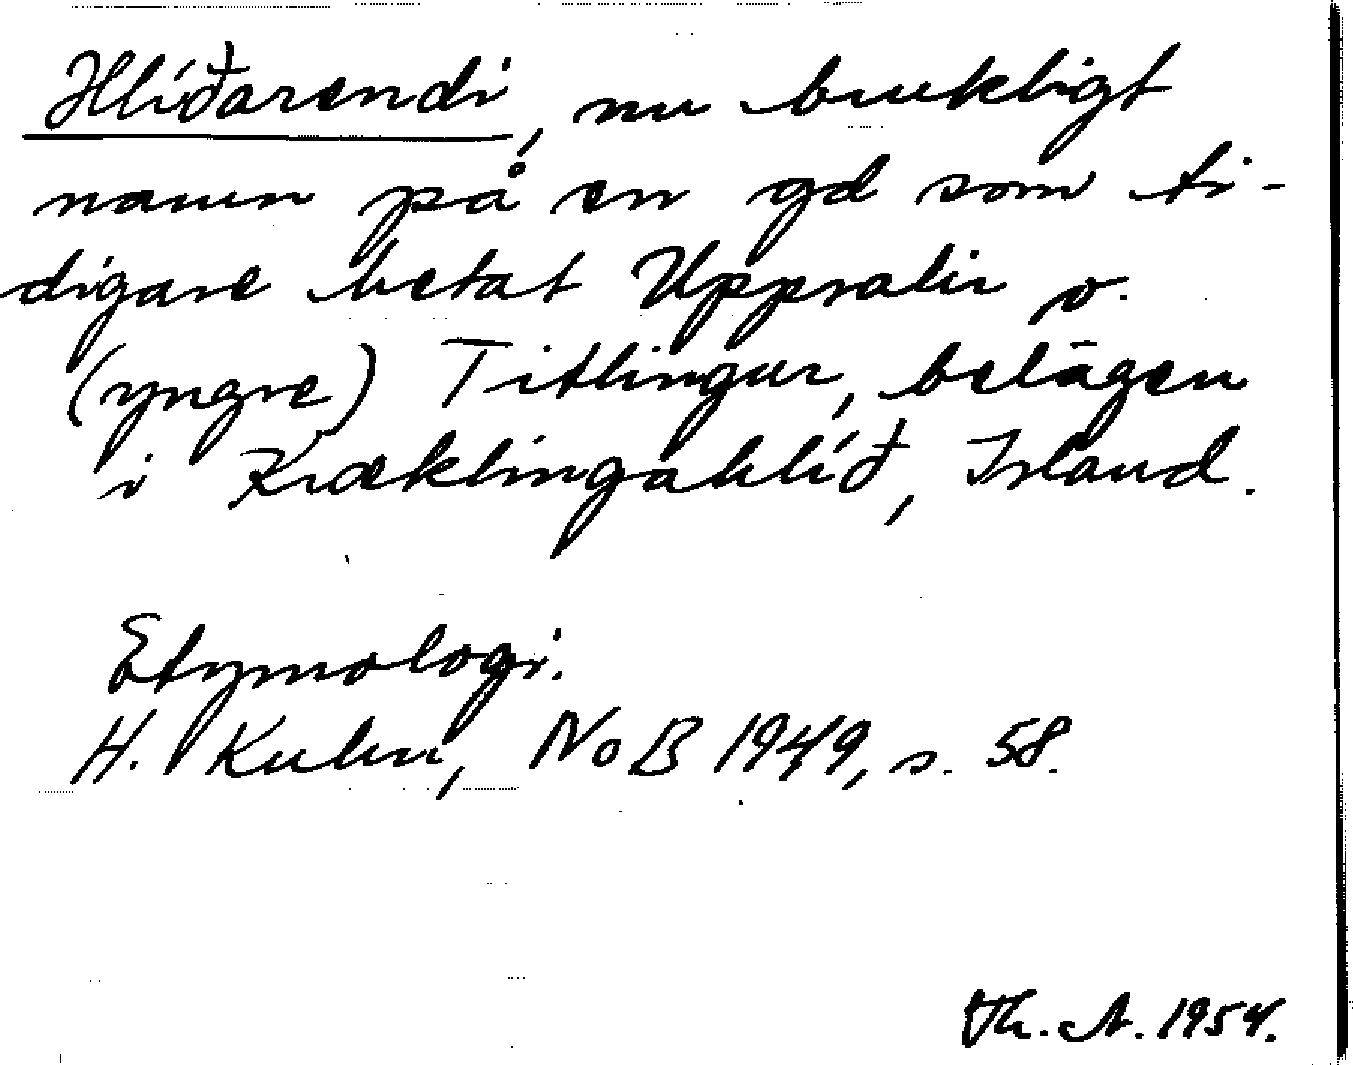 Hlíðarendi, nu brukligt
namn på en gd som ti-
digare hetat Uppsalir o.
(yngre) Titlingur, belägen
i Kræklingahlíð, Island.
Etymologi.
H. Kuhn, NoB 1949, s. 58.
Th. A. 1954.